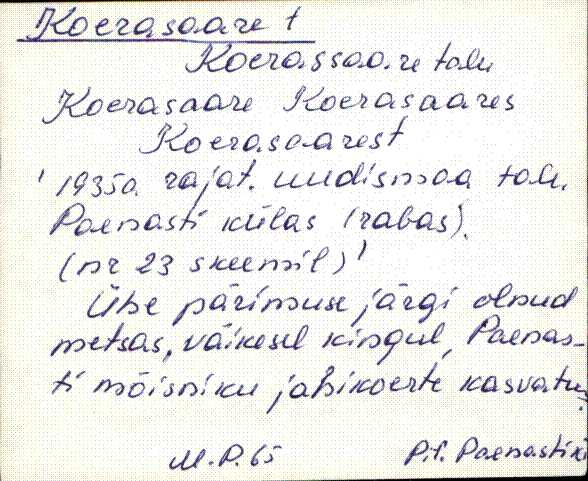 Koerasaare t
Koerassaare talu
Koerasaare Koerasaares
Koerasaarest
' 1935a. rajat. uudismaa talu
Paenasti külas (rabas).
(nr 23 skeemil)'
Ühe pärimuse järgi olnud
metsas, väikesel kingul, Paenas-
ti mõisniku jahikoerte kasvatus.
M.P. 65